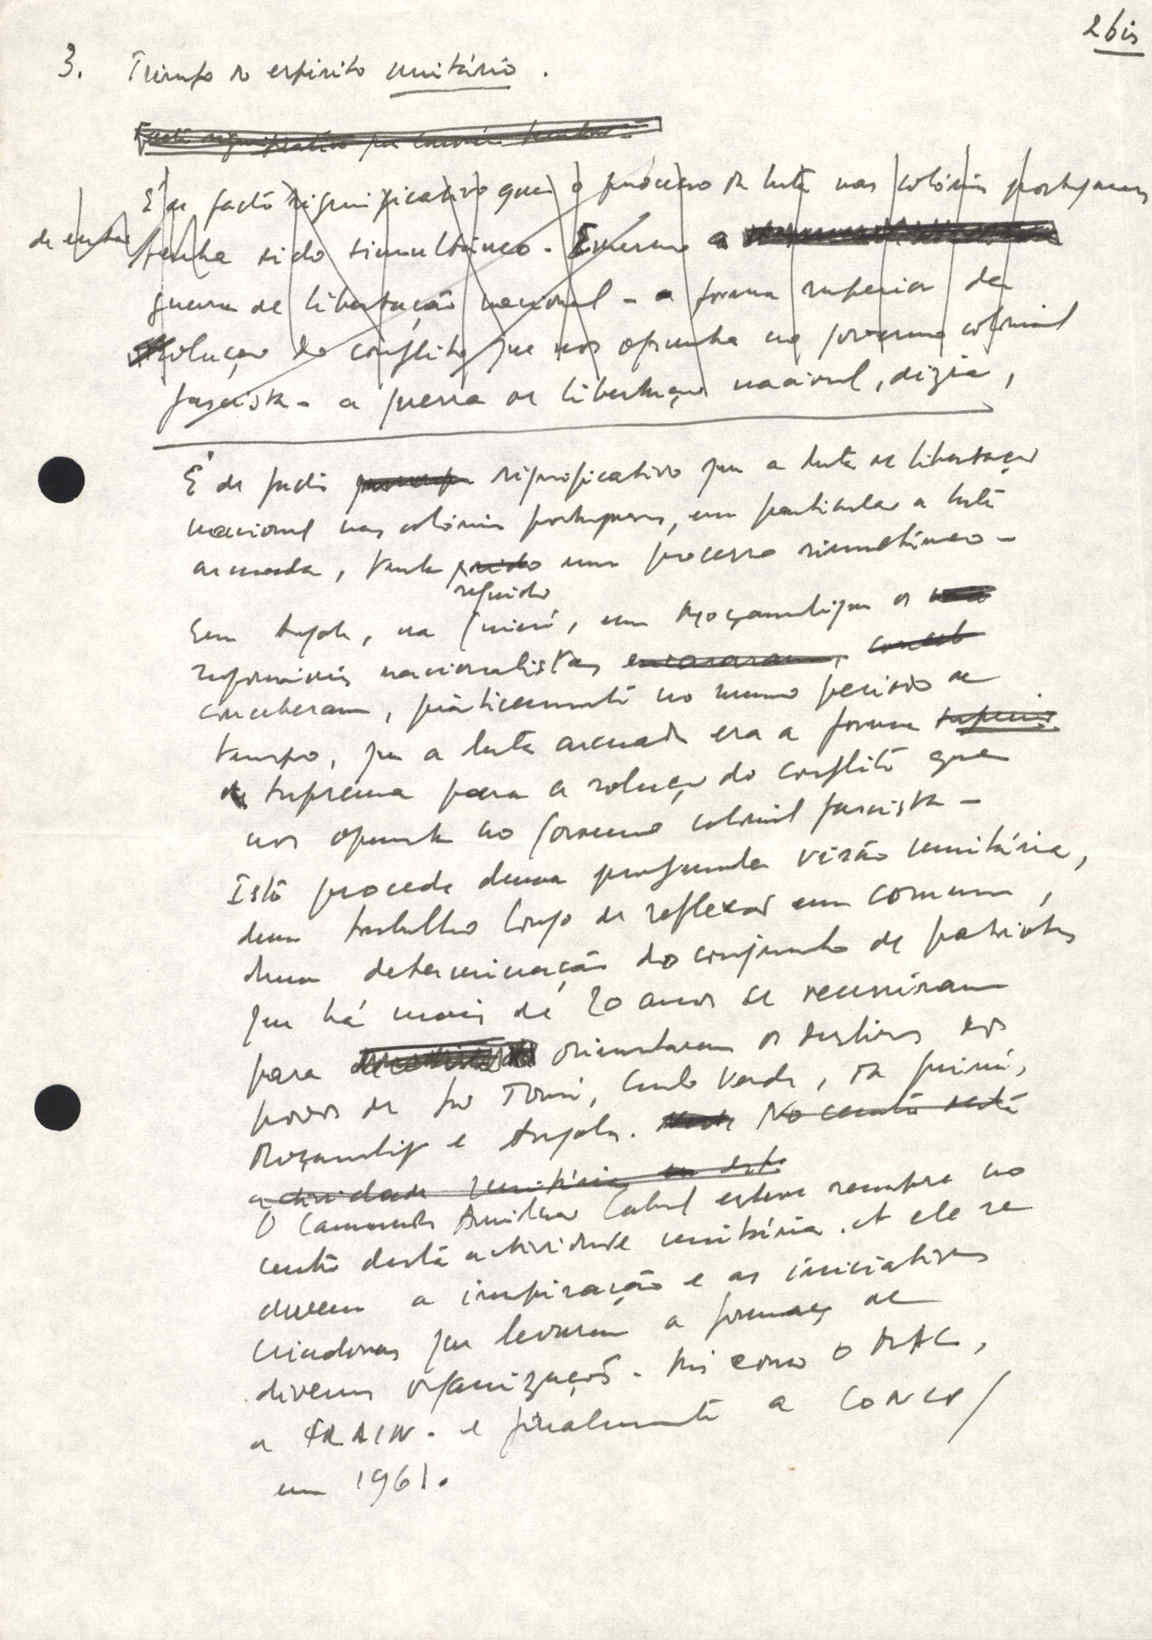 2 bis
3. Triunfo do espírito unitário.
É de facto significativo que o processo da luta nas colónias portuguesas
tenha sido simultâneo. Mesmo a
guerra de libertação nacional - a forma superior de
solução do conflito que nos opunha ao governo colonial
fascista - a guerra de libertação nacional, dizia,
É de facto significativo que a luta de libertação
nacional nas colónias portuguesas, em particular a luta
armada, tenha sido um processo simultâneo -
seguido
Em Angola, na Guiné, em Moçambique os
nacionalistas encararam,
conceberam, pràticamente no mesmo período de
tempo, que a luta armada era a forma superior
suprema para a solução do conflito que
nos opunha ao governo colonial fascista -
Isto procede duma profunda visão unitária,
dum trabalho longo de reflexão em comum,
duma determinação do conjunto de patriotas
que há mais de 20 anos se reuniram
para orientarem os destinos dos
povos de São Tomé, Cabo Verde, da Guiné,
Moçambique e Angola. No centro desta
actividade unitária
O Camarada Amílcar Cabral esteve sempre no
centro desta actividade unitária. A ele se
devem a inspiração e as iniciativas
criadoras que levaram a formação de
diversas organizações. Tais como o MAC,
a FRAIN. e finalmente a CONCP
em 1961.